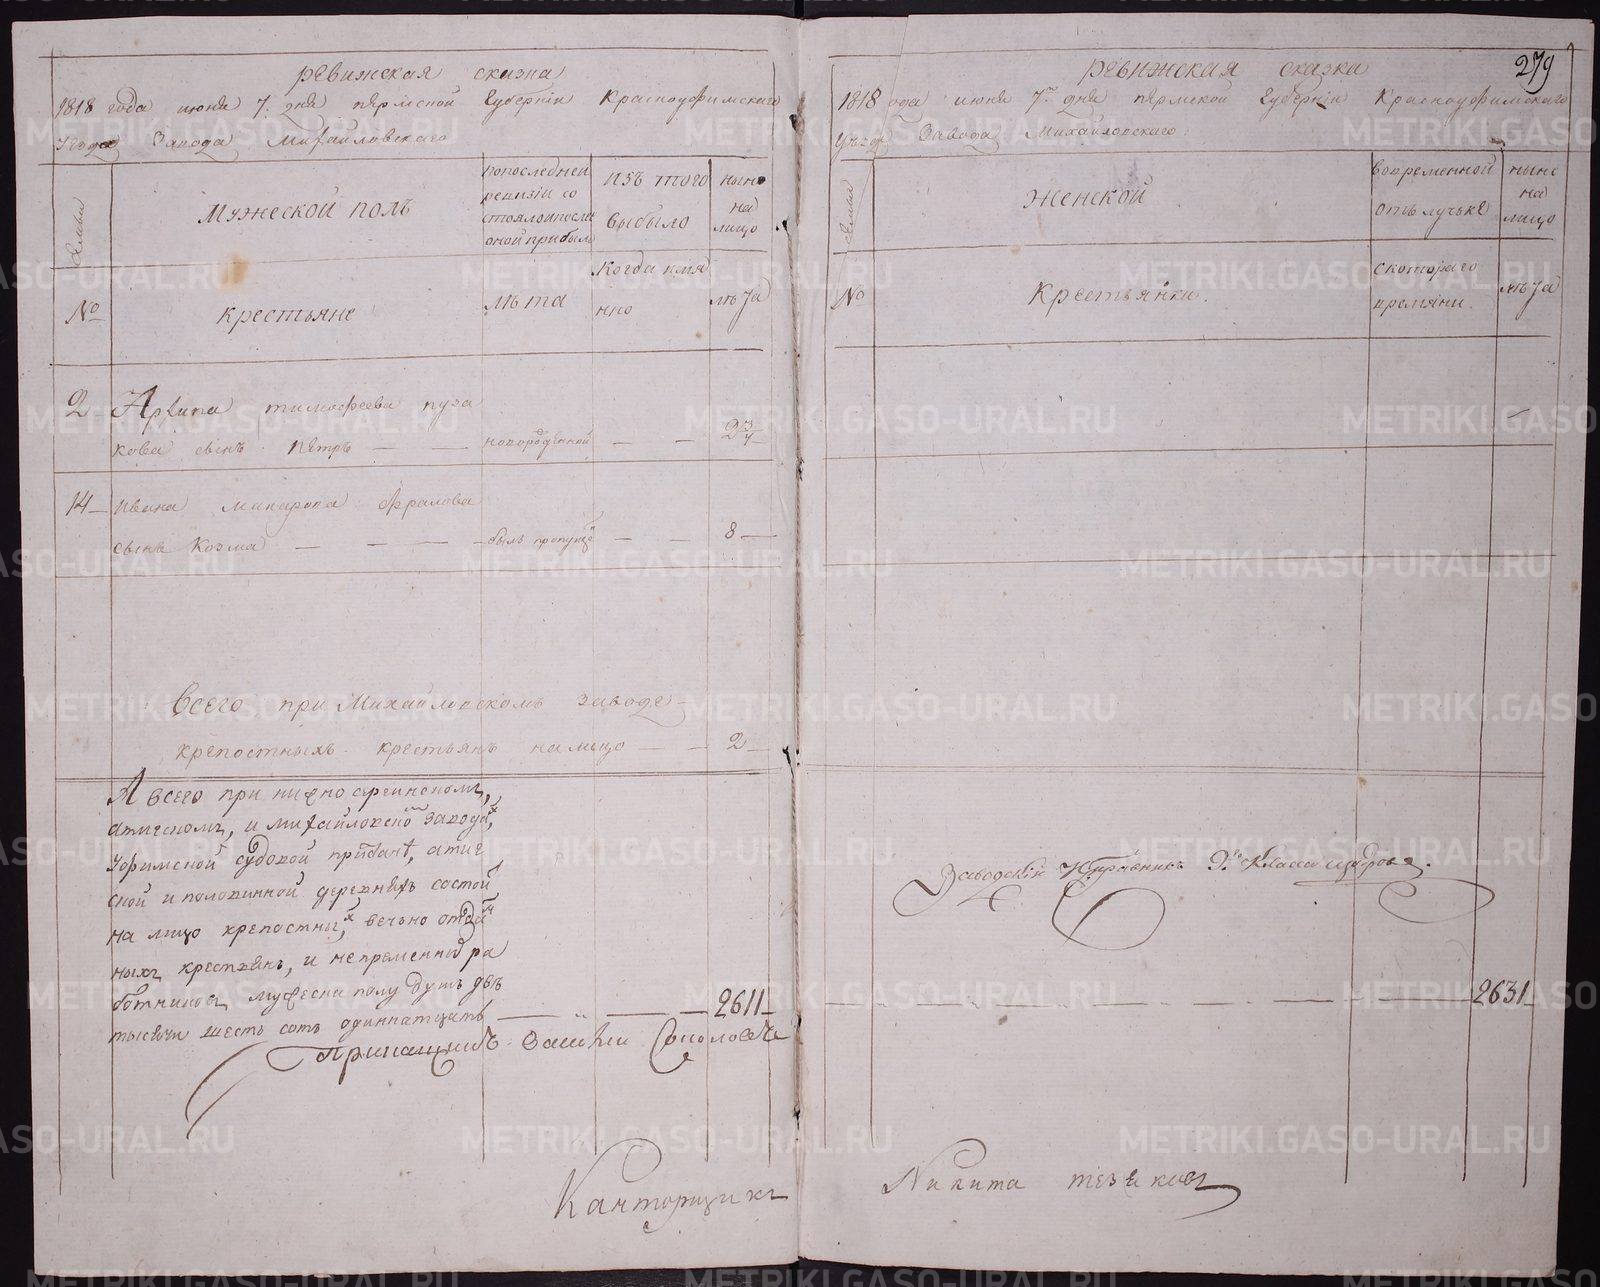 ревижская сказка
1818 года июня 7. дня пермской Губернiи Красноуфимскаго
уезда Завода Михайловскаго
Семьи
Мужеской полъ
попоследней
ревизiи со
стоялоипосле
оной прибыло
изъ того
выбыло
ныне
на
лицо
№
крестьяне
лѣта
Когда имя
нно
лѣта
2 Архипа тимофеева пуза
кова сынъ Пётръ — — новорожденной — — 2 3/4
14 Ивана макарова Фралова
сынъ Козма — — — — былъ пропущ — — 8 —
Всего при Михайловскомъ заводе
крепостныхъ крестьянъ налицо — — 2 —
А всего при нижно сергинскомъ,
атигскомъ, и михайловско заводах,
Уфимской судовой пристани, атиг
ской и половинной деревняхъ состои
на лицо крепостных, вечьно отдан
ныхъ крестьянъ, и непременных ра
ботниковъ мужеска полу душъ две
тысячи шесть сотъ одиннатцать — — — 2611 —
Прикащикъ Василий Соколовъ
Канторщикъ
279
ревижская сказка
1818 ода июня 7го дня пермской Губернiи Красноуфимскаго
Уезда Завода Михайловскаго
Семьи
Женской
вовременной
отълучьке
ныне
на
лицо
№
Крестьянки.
скотораго
времяни.
лѣта
Заводскiй Исправникъ 9го Класса
2631
Никита тезяковъ
METRIKI.GASO-URAL.RU